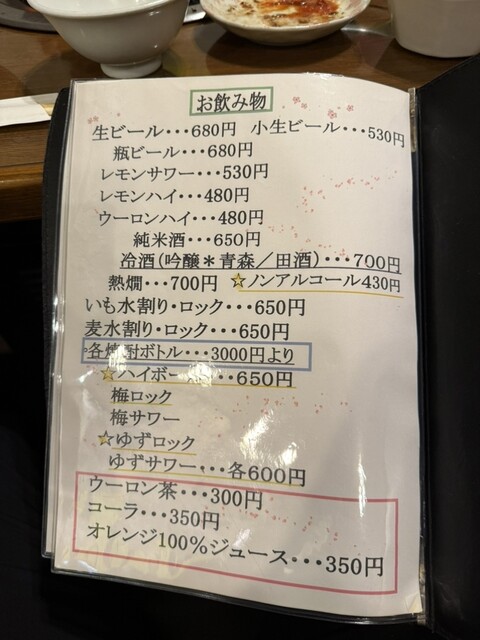 お飲み物
生ビール・・・680円 小生ビール・・・530円
瓶ビール・・・680円
レモンサワー・・・530円
レモンハイ・・・480円
ウーロンハイ・・・480円
純米酒・・・650円
冷酒(吟醸＊青森／田酒)・・・700円
熱燗・・・700円 ☆ノンアルコール430円
いも水割り・ロック・・・650円
麦水割り・ロック・・・650円
各焼酎ボトル・・・3000円より
☆ハイボール・・・650円
梅ロック
梅サワー
☆ゆずロック
ゆずサワー・・・各600円
ウーロン茶・・・300円
コーラ・・・350円
オレンジ100％ジュース・・・350円